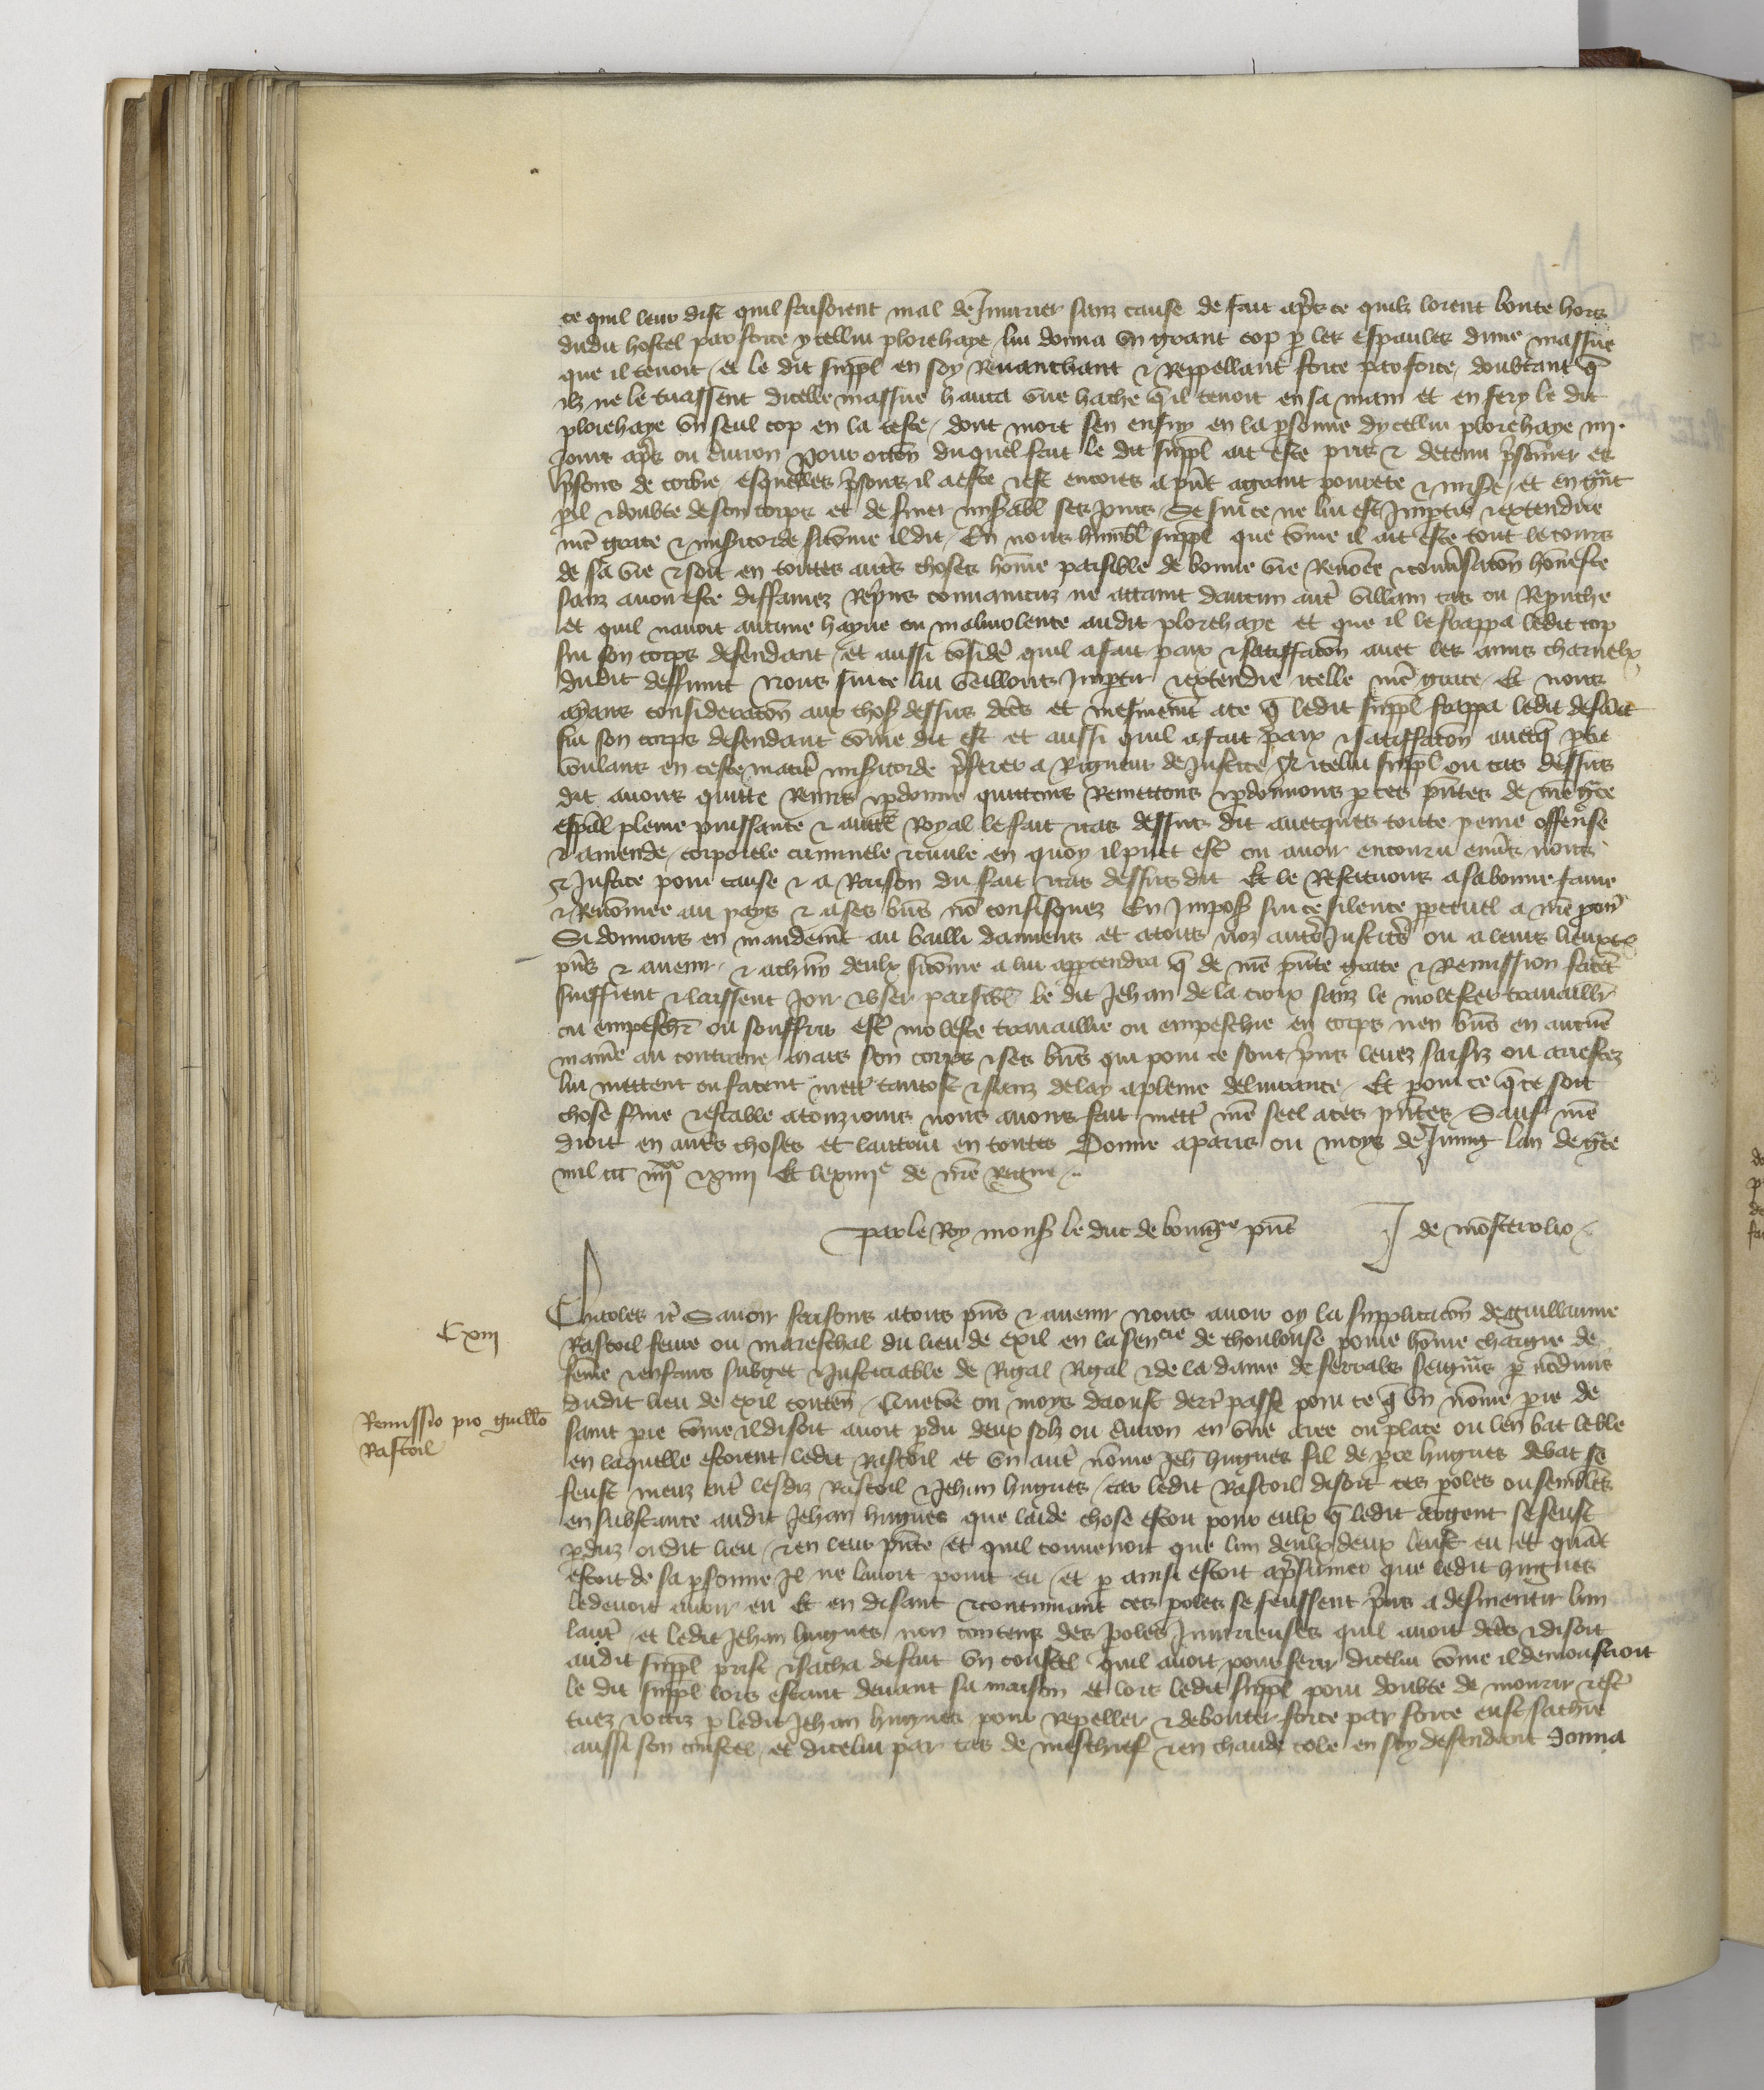 ce quil leur dist quil faisoient mal de Iniurier sanz cause de fait apres ce quilz lorent boute hors
dudit hostel par force ycellui plorehaye lui donna vn grant cop p les espaules dune massue
que il tenoit et le dit suppl en soy Reuanchant & Reppellant force par force doubtant q
ilz ne le tuassent dicelle massue hauca vne hache quil tenoit en sa main et en fery le dit
plorehaye vn seul cop en la teste dont mort sen ensuy en la psonne dycellui plorehaye iiij
Iours apres ou enuiron pour occon duquel fait le dit suppl ait este pris & detenu prisonnier es
prisons de corbie esquelles prisons il a este & est encores a pnt a grant pourete & misere et en grant
pil & doubte de son corps et de finer misabl ses Iours Se sur ce ne lui est Impartie & extendue
nre grace & misicorde sicome il dit En nous humbl suppl que come il ait este tout le cours
de sa vie & soit en toutes autres choses home paisible de bonne vie Renomee & conusacon honneste
sanz auoir este diffamez Repris conuaincuz ne attaint daucun autre villain cas ou Reprouche
et quil nauoit aucune hayne ou maliuolence audit plorehaye et que il le frappa ledit cop
sur son corps defendant et aussi considere quil a fait paix & satisfacon auec les amis charnelx
dudit deffunt nous sur ce lui veillons Impartir & extendre icelle nre grace Et nous
ayans consideracon aux choses dessus dces et mesmemt ace q ledit suppl frappa ledit defunct
sur son corps defendant come dit est et aussi quil a fait paix & satisfacon auecq ptie
voulans en ceste matiere misicorde preferer a Rigueur de Iustice & icelui suppl ou cas dessus
dit auons quitte Remis & pdonne quittons Remettons & pdonnons p ces pntes de nre grace
espal pleine puissance & aucte Royal le fait & cas dessus dit auecques toute peine offense
& amende corporele criminele & ciuile en quoy il puet estre ou auoir encouru enuers nous
& Iustice pour cause & a Raison du fait & cas dessus dit Et le Restituons a sa bonne fame
& Renommee au pays & a ses biens no confisquez En Impos sur ce silence ppetuel a nre pcur
Si donnons en mandemt au bailli damiens et atous noz autres Iusticiers ou a leurs lieuxten
pns & auenir & achun deulx sicome a lui appartendra q de nre pnte grace & Remission facent
sueffrent & laissent Ioir & vser paisibl le dit Iehan de la croix sanz le molester trauaillr
ou empeschr ou souffrir estre moleste trauaillie ou empeschie en corps nen biens en aucune
maniere au contraire mais son corps & ses biens qui pour ce sont pris leuez saisiz ou arrestez
lui mettent ou facent mettre tantost & sanz delay apleine deliurance Et pour ce q ce soit
chose ferme & estable atouziours nous auons fait mettre nre seel aces pntes Sauf nre
droit en autres choses et lautrui en toutes Donne a paris ou moys de Iuing lan de grace
mil ccc iiijxx & xiiij Et le xiiije de nre Regne
par le Roy monsr le duc de bourge pnt I de mosterolio
Cxiij
Charles &c Sauoir faisons atous pns & auenir Nous auoir oy la supplicacon de guillaume
Rastoil feure ou mareschal du lieu de exil en la sencie de thoulouse poure home chargie de
feme & enfans subget & Iusticiable de Rigal Rigal & de la dame de seruals seignrs p indiuis
dudit lieu de exil conten Que come ou moys daoust derr passe pour ce q vn nome pre de
Remissio pro guillo
Rastoil
saint pre come il disoit auoit pdu deux solz ou enuiron en vne aire ou place ou len bat le ble
en laquelle estoient ledit Rastoil et vn autre nome Ieh hugues fil de pre hugues debat se
feust meuz entre lesdiz Rastoil & Iehan hugues car ledit Rastoil disoit ces poles ou semblables
en substance audit Iehan hugues que laide chose estoit pour eulx q ledit argent se feust
pduz oudit lieu & en leur pnte et quil conuenoit que lun deulx deux leust eu et quant
estoit de sa psonne Il ne lauoit point eu et p ainsi estoit a presumer que ledit hugues
le deuoit auoir eu Et en disant & continuant ces poles se feussent pris a desmentir lun
lautre et ledit Iehan hugues non contens des poles Iniurieuses quil auoit dces & disoit
audit suppl prist & sacha de fait vn coustel quil auoit pour ferir dicelui come il demonstroit
le dit suppl lors estant deuant sa maison et lors ledit suppl pour doubte de mourir & estre
tuez & occiz p ledit Iehan hugues pour repeller & debouter force par force eust sachie
aussi son coustel et dicelui par cas de meschief & en chaude cole en soy defendant donna